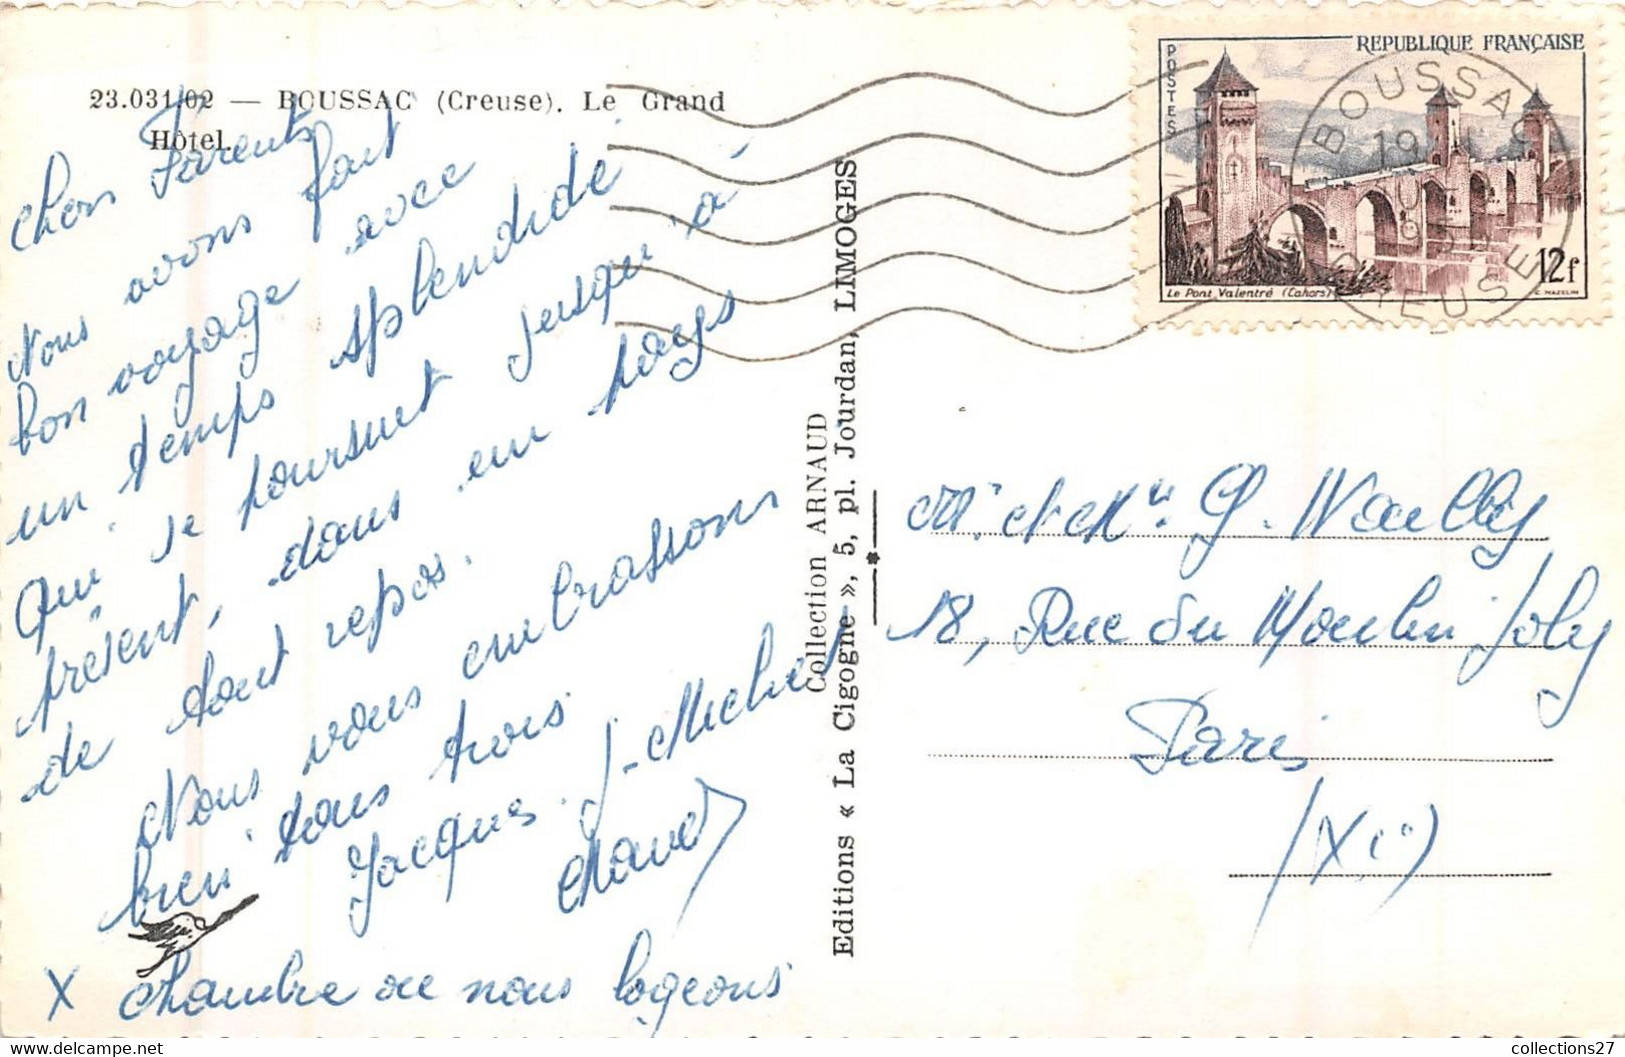 23.031.02 — BOUSSAC (Creuse). Le Grand
Hôtel.
Chers Parents
Nous avons fait
bon voyage avec
un temps splendide
qui se poursuit jusqu'à
présent, dans un pays
de tout repos.
Nous vous embrassons
bien tous trois
Jacques. J-Michel
X chambre où nous logeons
Collection ARNAUD
Editions « La Cigogne », 5, pl. Jourdan, LIMOGES
REPUBLIQUE FRANÇAISE
POSTES
Le Pont Valentré (Cahors)
12f
C. MAZELIN
BOUSSAC
CREUSE
Mr et Mme G. Wailly
18, Rue du Moulin Joly
Paris
(XIe)
collections27